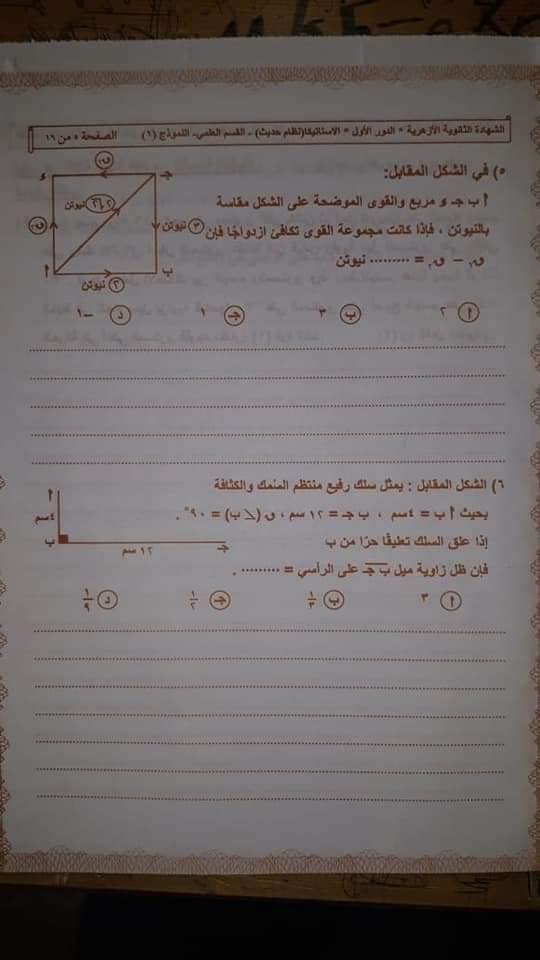 الشهادة الثانوية الأزهرية - الدور الأول - الاستاتيكا(نظام حديث) - القسم العلمي- النموذج (١) الصفحة ٥ من ١٦
٥) في الشكل المقابل:
أ ب جـ ء مربع والقوى الموضحة على الشكل مقاسة
بالنيوتن ، فإذا كانت مجموعة القوى تكافئ ازدواجًا فإن
= ......... نيوتن
أ ٢ ب ٣ جـ ١ د -١
ء
جـ
نيوتن
٣ نيوتن
أ
ب
٢ نيوتن
٦) الشكل المقابل : يمثل سلك رفيع منتظم السُمك والكثافة
بحيث أ ب = ٤ سم ، ب جـ = ١٢ سم ، ق (∠ ب) = ٩٠° .
إذا علق السلك تعليقًا حرًا من ب
فإن ظل زاوية ميل ب جـ على الرأسي = ......... .
أ ٣ ب ١/٣ جـ ١/٢ د ١/٩
أ
٤سم
ب
١٢ سم
جـ